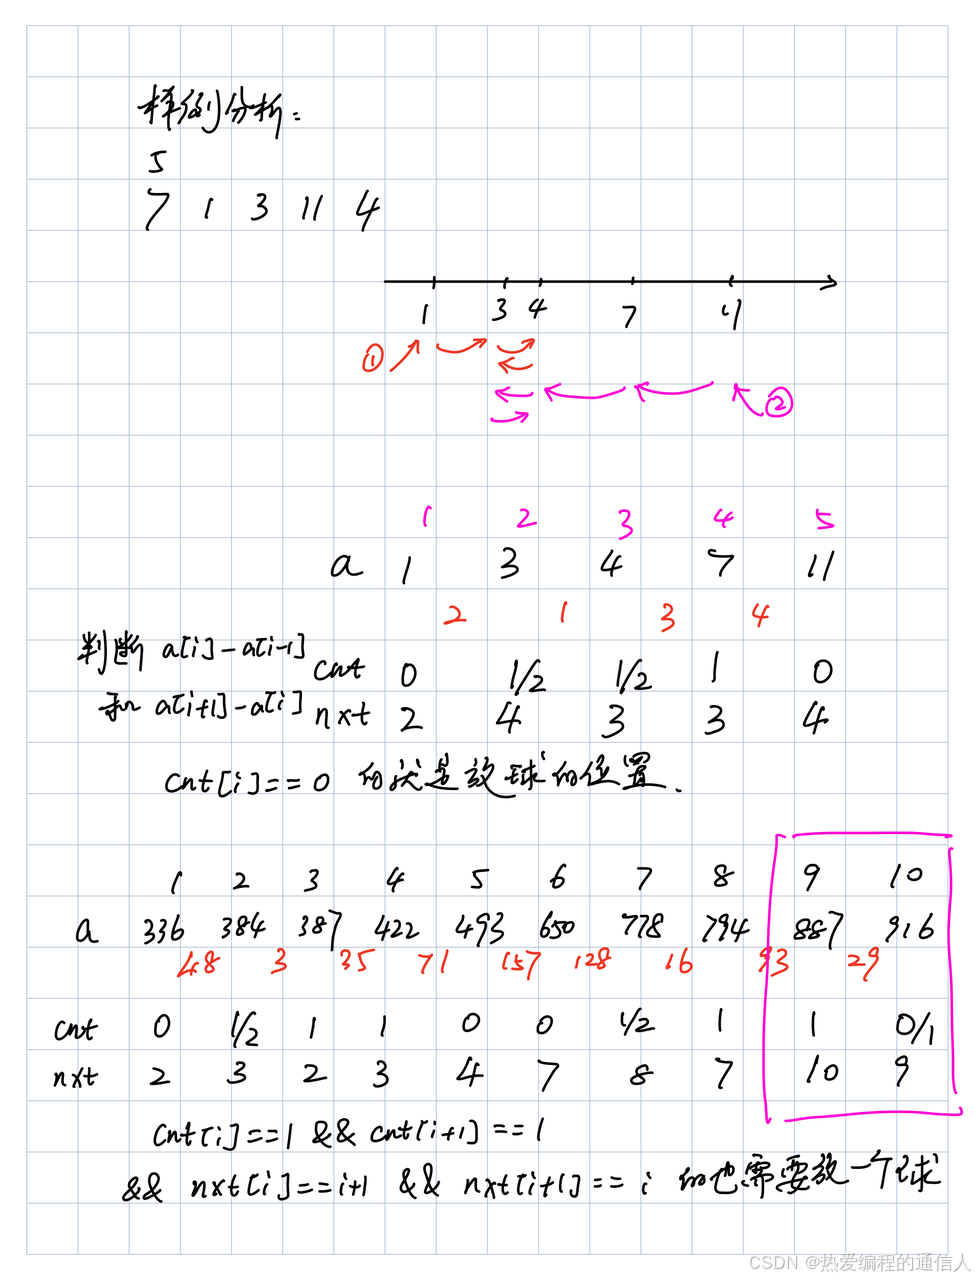 样例分析：
5
7 1 3 11 4
1 3 4 7 11
①
②
1 2 3 4 5
a 1 3 4 7 11
2 1 3 4
判断 a[i]-a[i-1]
cnt 0 1/2 1/2 1 0
和 a[i+1]-a[i]
nxt 2 4 3 3 4
cnt[i]==0 的状是放球的位置.
1 2 3 4 5 6 7 8 9 10
a 336 384 387 422 493 650 778 794 887 916
48 3 35 71 157 128 16 93 29
cnt 0 1/2 1 1 0 0 1/2 1 1 0/1
nxt 2 3 2 3 4 7 8 7 10 9
cnt[i]==1 && cnt[i+1]==1
&& nxt[i]==i+1 && nxt[i+1]==i 的也需要放一个球
CSDN @热爱编程的通信人